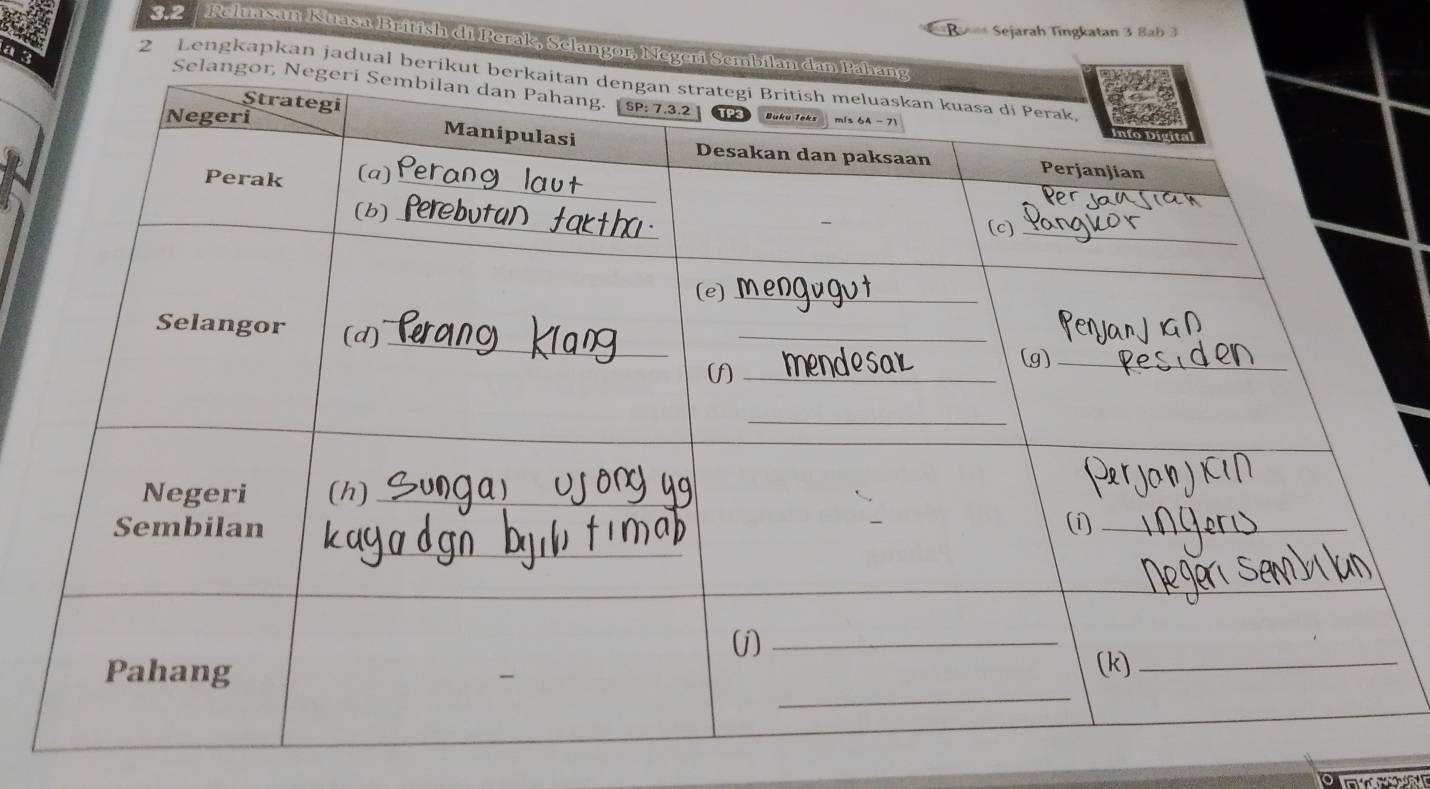 3.2 Peluasan Kuasa British di Perak, Selangor, Negeri Sembilan dan Pahang
Sejarah Tingkatan 3 Bab 3
a 3
2 Lengkapkan jadual berikut berkaitan dengan strategi British meluaskan kuasa di Perak,
Selangor, Negeri Sembilan dan Pahang. SP: 7.3.2 TP3 Buku Teks m/s 64 - 71
Info Digital
Strategi
Negeri
Manipulasi
Desakan dan paksaan
Perjanjian
Perak
(a) Perang laut
(b) Perebutan taktha.
-
Perjansian
(c) Pangkor
Selangor
(d) Perang Klang
(e) mengugut
(f) mendesak
Penjanjian
(g) Residen
Negeri
Sembilan
(h) Sungai Ujong yg
kaya dgn bijih timah
-
Perjanjian
(i) ingeris
negeri sembilan
Pahang
-
(j)
(k)